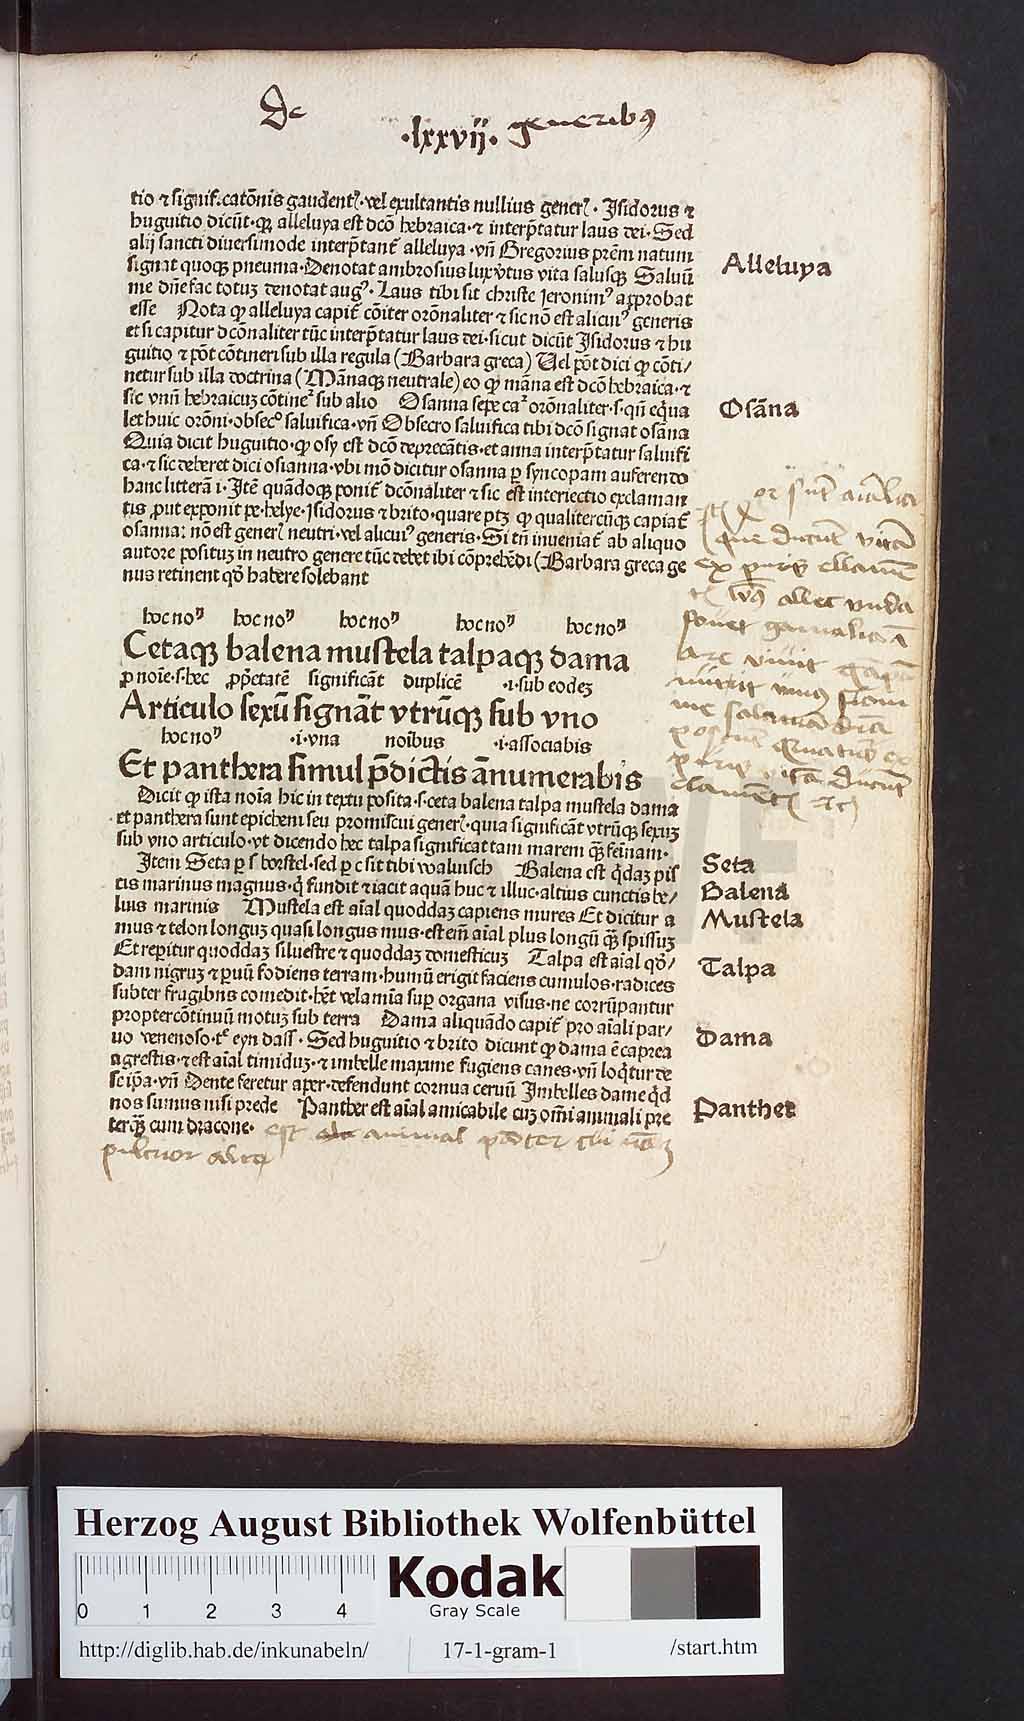 De
·lxxvij· generibꝰ
tio ⁊ significatōnis gaudentꝭ·vel exultantis nullius generꝭ· Jsidorus ⁊
huguitio dicūt·ꝙ alleluya est dcō hebraica·⁊ interp̄tatur laus dei·Sed
alij sancti diuersimode interp̄tant̄ alleluya·vn̄ Gregorius prēm natum
signat quoqꝫ pneuma·Denotat ambrosius lux vtus vita salusqꝫ Saluū
me dn̄e fac totuꝫ denotat augꝰ· Laus tibi sit christe Jeronimꝰ approbat
esse Nota ꝙ alleluya capit̄ cōiter orōnaliter ⁊ sic nō est alicuiꝰ generis
et si capitur dcōnaliter tūc interp̄tatur laus dei·sicut dicūt Jsidorus ⁊ hu
guitio ⁊ pōt cōtineri sub illa regula (Barbara greca) Uel pōt dici ꝙ cōti/
netur sub illa doctrina (Mānaqꝫ neutrale) eo ꝙ māna est dcō hebraica·⁊
sic vnū hebraicuꝫ cōtineꝛ sub alio Osanna sepe caꝛ orōnaliter·s·qn̄ eq̄ua
let huic orōni·obsecꝛo saluifica·vn̄ Obsecro saluifica tibi dcō signat osāna
Quia dicit huguitio·ꝙ osy est dcō deprecātis·et anna interp̄tatur saluifi
ca·⁊ sic deberet dici osianna·vbi mō dicitur osanna ꝑ syncopam auferendo
hanc litterā i·Jtē quādoqꝫ ponit̄ dcōnaliter ⁊ sic est interiectio exclaman
tis ꝓut exponit pe·helye·Jsidorus ⁊ brito·quare ptꝫ ꝙ qualitercūqꝫ capiat̄
osanna: nō est generꝭ neutri·vel alicuiꝰ generis·Si tn̄ inueniat̄ ab aliquo
autore posituꝫ in neutro genere tūc debet ibi cōprehēdi (Barbara greca ge
nus retinent qd̄ habere solebant
Alleluya
Osāna
hoc noⁿ hoc noⁿ hoc noⁿ hoc noⁿ hoc noⁿ
Cetaqꝫ balena mustela talpaqꝫ dama
ꝑ noīe·s·hec ꝓp̄etatē significāt duplicē ·i·sub eodeꝫ
Articulo sexū signāt vtrūqꝫ sub vno
hoc noⁿ ·i·vna noībus ·i·associabis
Et panthera simul p̄dictis ānumerabis
Dicit ꝙ ista noīa hic in textu posita·s·ceta balena talpa mustela dama
et panthera sunt epicheni seu promiscui generꝭ·quia significāt vtrūqꝫ sexuꝫ
sub vno articulo·vt dicendo hec talpa significat tam marem qꝫ̄ femīnam·
Jtem Seta ꝑ s borstel·sed ꝑ c sit tibi waluisch Balena est q̄daꝫ pis
tis marinus magnus·q̄ fundit ⁊ iacit aquā huc ⁊ illuc·altius cunctis be/
luis marinis Mustela est aīal quoddaꝫ capiens mures Et dicitur a
mus ⁊ telon longuꝫ quasi longus mus·est em̄ aīal plus longū qꝫ̄ spissuꝫ
Et reꝑitur quoddaꝫ siluestre ⁊ quoddaꝫ domesticuꝫ Talpa est aīal qd̄/
dam nigruꝫ ⁊ ꝑuū fodiens terram·humū erigit faciens cumulos·radices
subter frugibus comedit·hēt velamīa suꝑ organa visus·ne corrūpantur
propter cōtinuū motuꝫ sub terra Dama aliquādo capit̄ pro aīali par/
uo venenoso·tꝛ eyn dass· Sed huguitio ⁊ brito dicunt ꝙ dama ē caprea
agrestis·⁊ est aīal timiduꝫ·⁊ imbelle maxime fugiens canes·vn̄ loq̄tur de
se ip̄a·vn̄ Dente feretur aper·defendunt cornua ceruū Jmbelles dame qd̄
nos sumus nisi prede Panther est aīal amicabile cuꝫ om̄i animali pre
terqꝫ̄ cum dracone· est animal
pulcrior
Seta
Balena
Mustela
Talpa
Dama
Panther
Herzog August Bibliothek Wolfenbüttel
0 1 2 3 4
Kodak
Gray Scale
http://diglib.hab.de/inkunabeln/ 17-1-gram-1 /start.htm